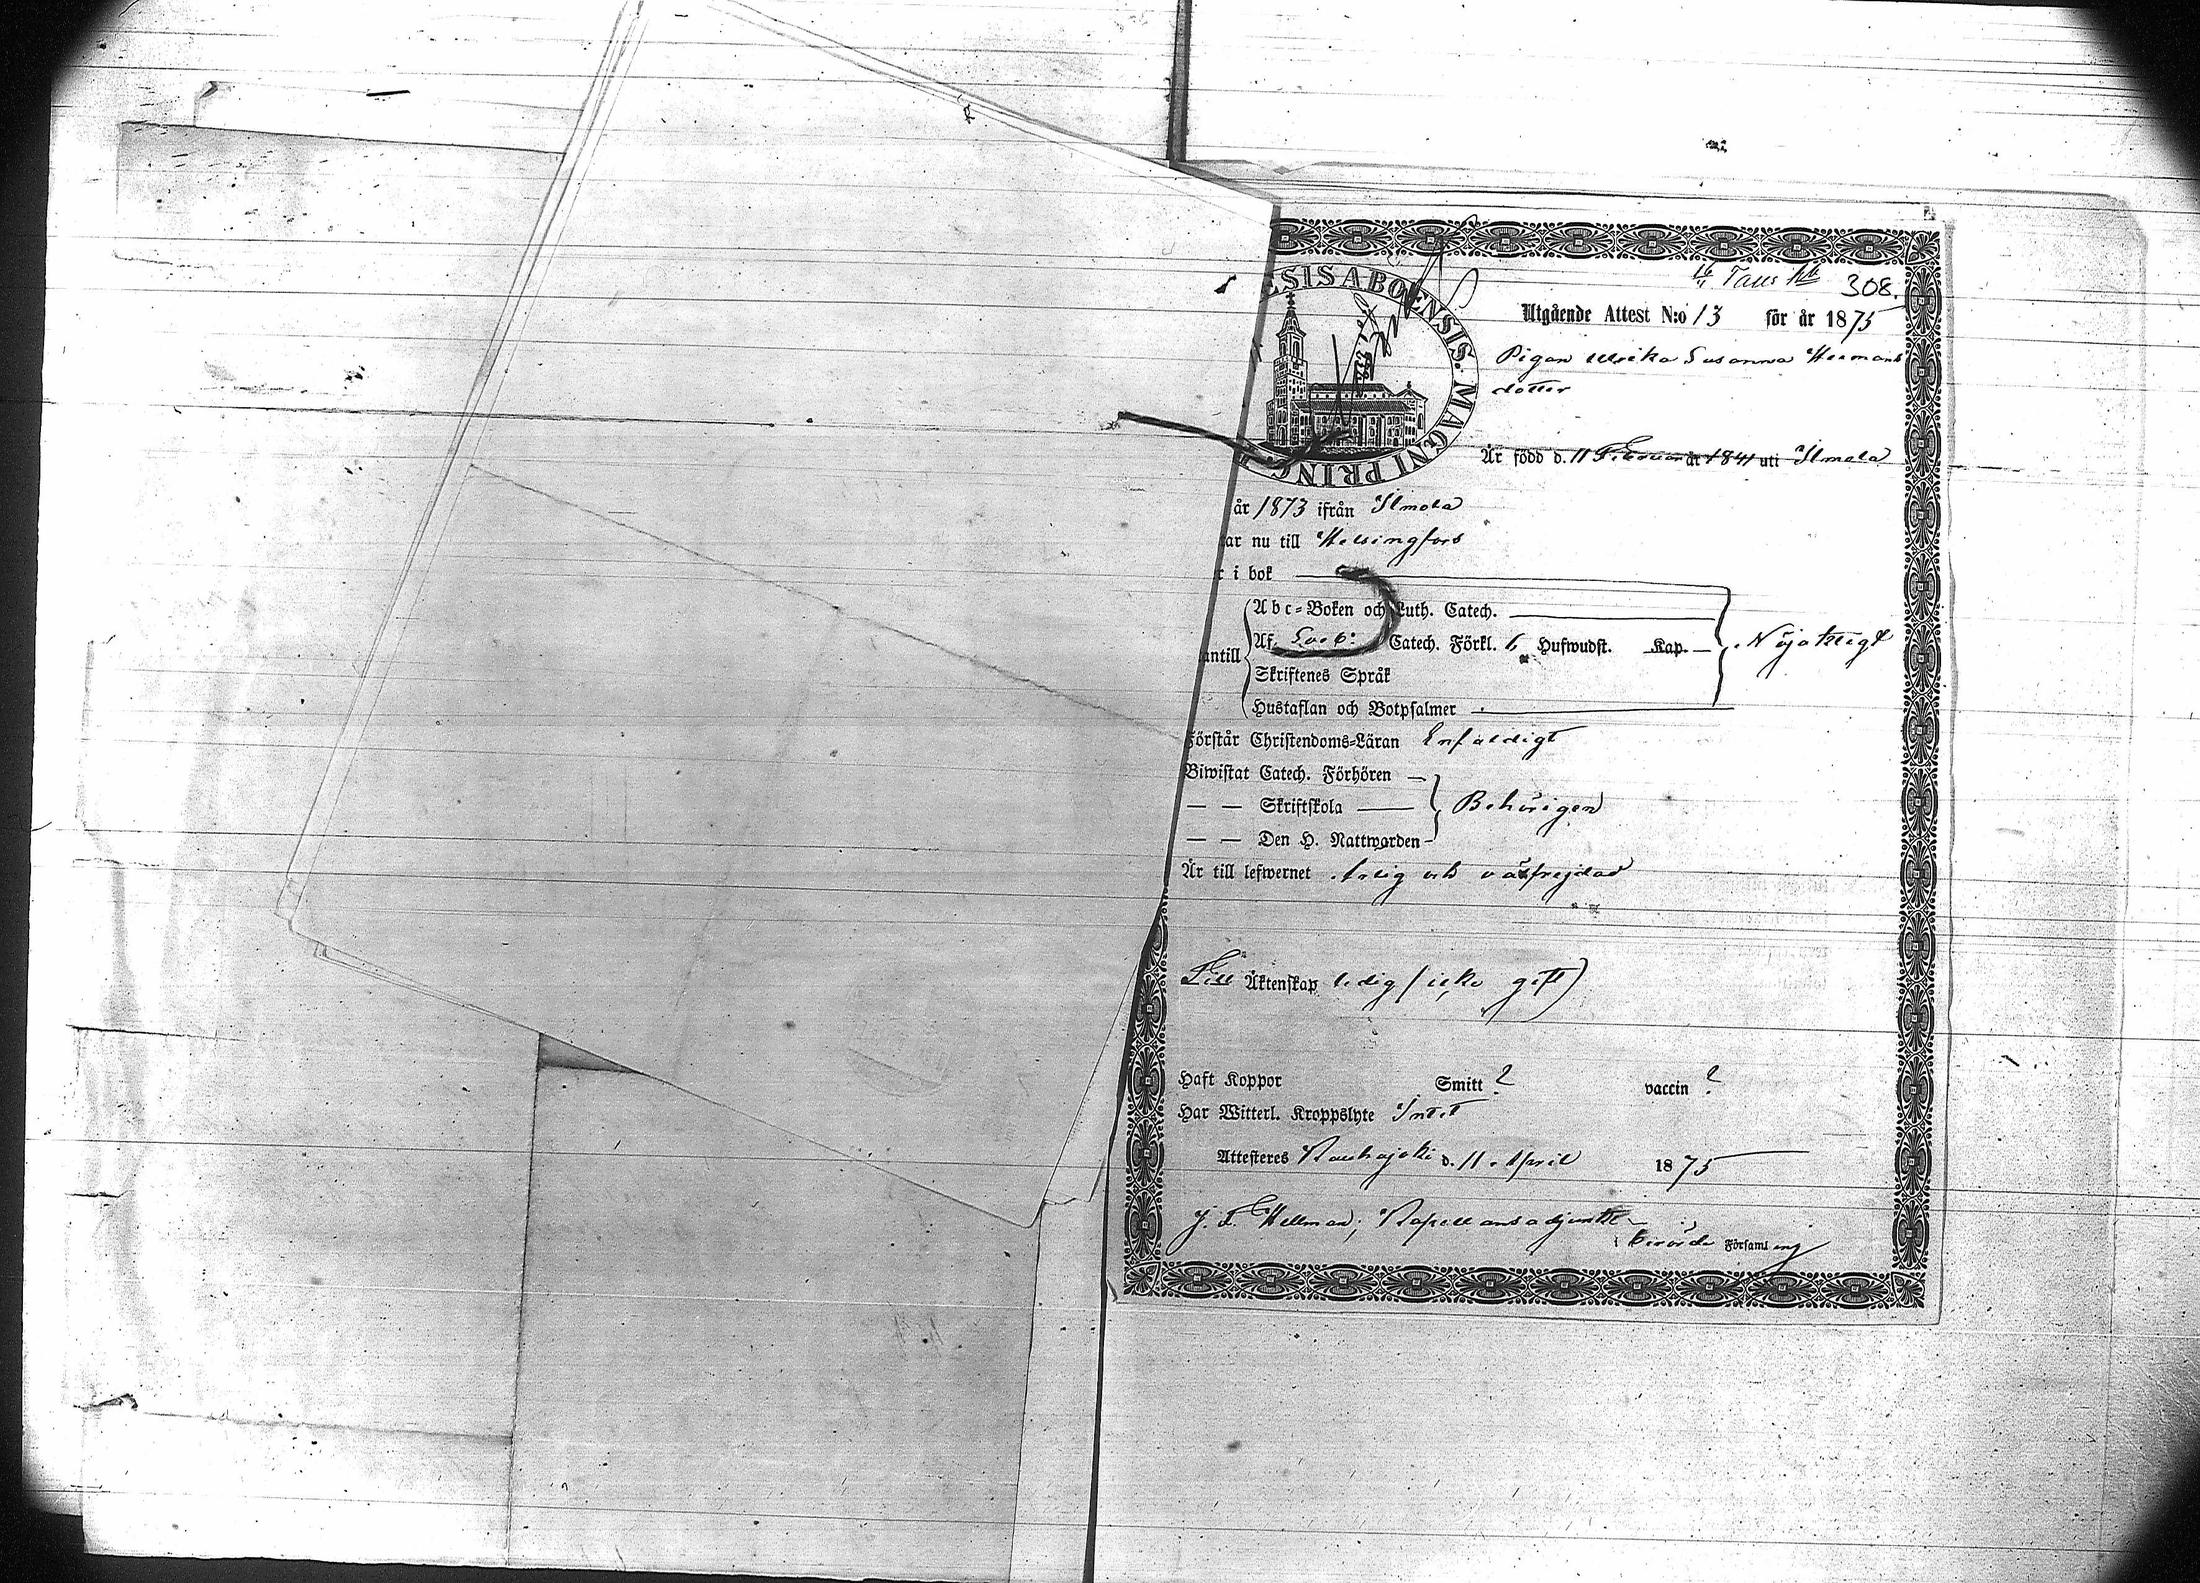 308.
ESIS ABOENSIS. MAGNI PRINC
Utgående Attest N:o 13 för år 1875
Pigan Ulrika Susanna Hermans
dotter
Är född d. 11 Februari år 1841 uti Ilmola
år 1873 ifrån Ilmola
ar nu till Helsingfors
r i bok
Abc-Boken och Luth. Catech.
Af Sveb: Catech. Förkl. 6 Hufwudst. Kap. Nöjaktigt
antill
Skriftenes Språk
Hustaflan och Botpsalmer
Förstår Christendoms-Läran Enfaldigt
Biwistat Catech. Förhören
— — Skriftskola Behörigen
— — Den H. Nattwarden
Är till lefwernet ärlig och välfrejdad
Till Äktenskap ledig (icke gift)
Haft Koppor Smitt ? vaccin ?
Har Witterl. Kroppslyte Intet
Attesteres Kauhajoki d. 11 April 1875
J. F. Hellman, Kapellansadjunkt
i berörde Församling